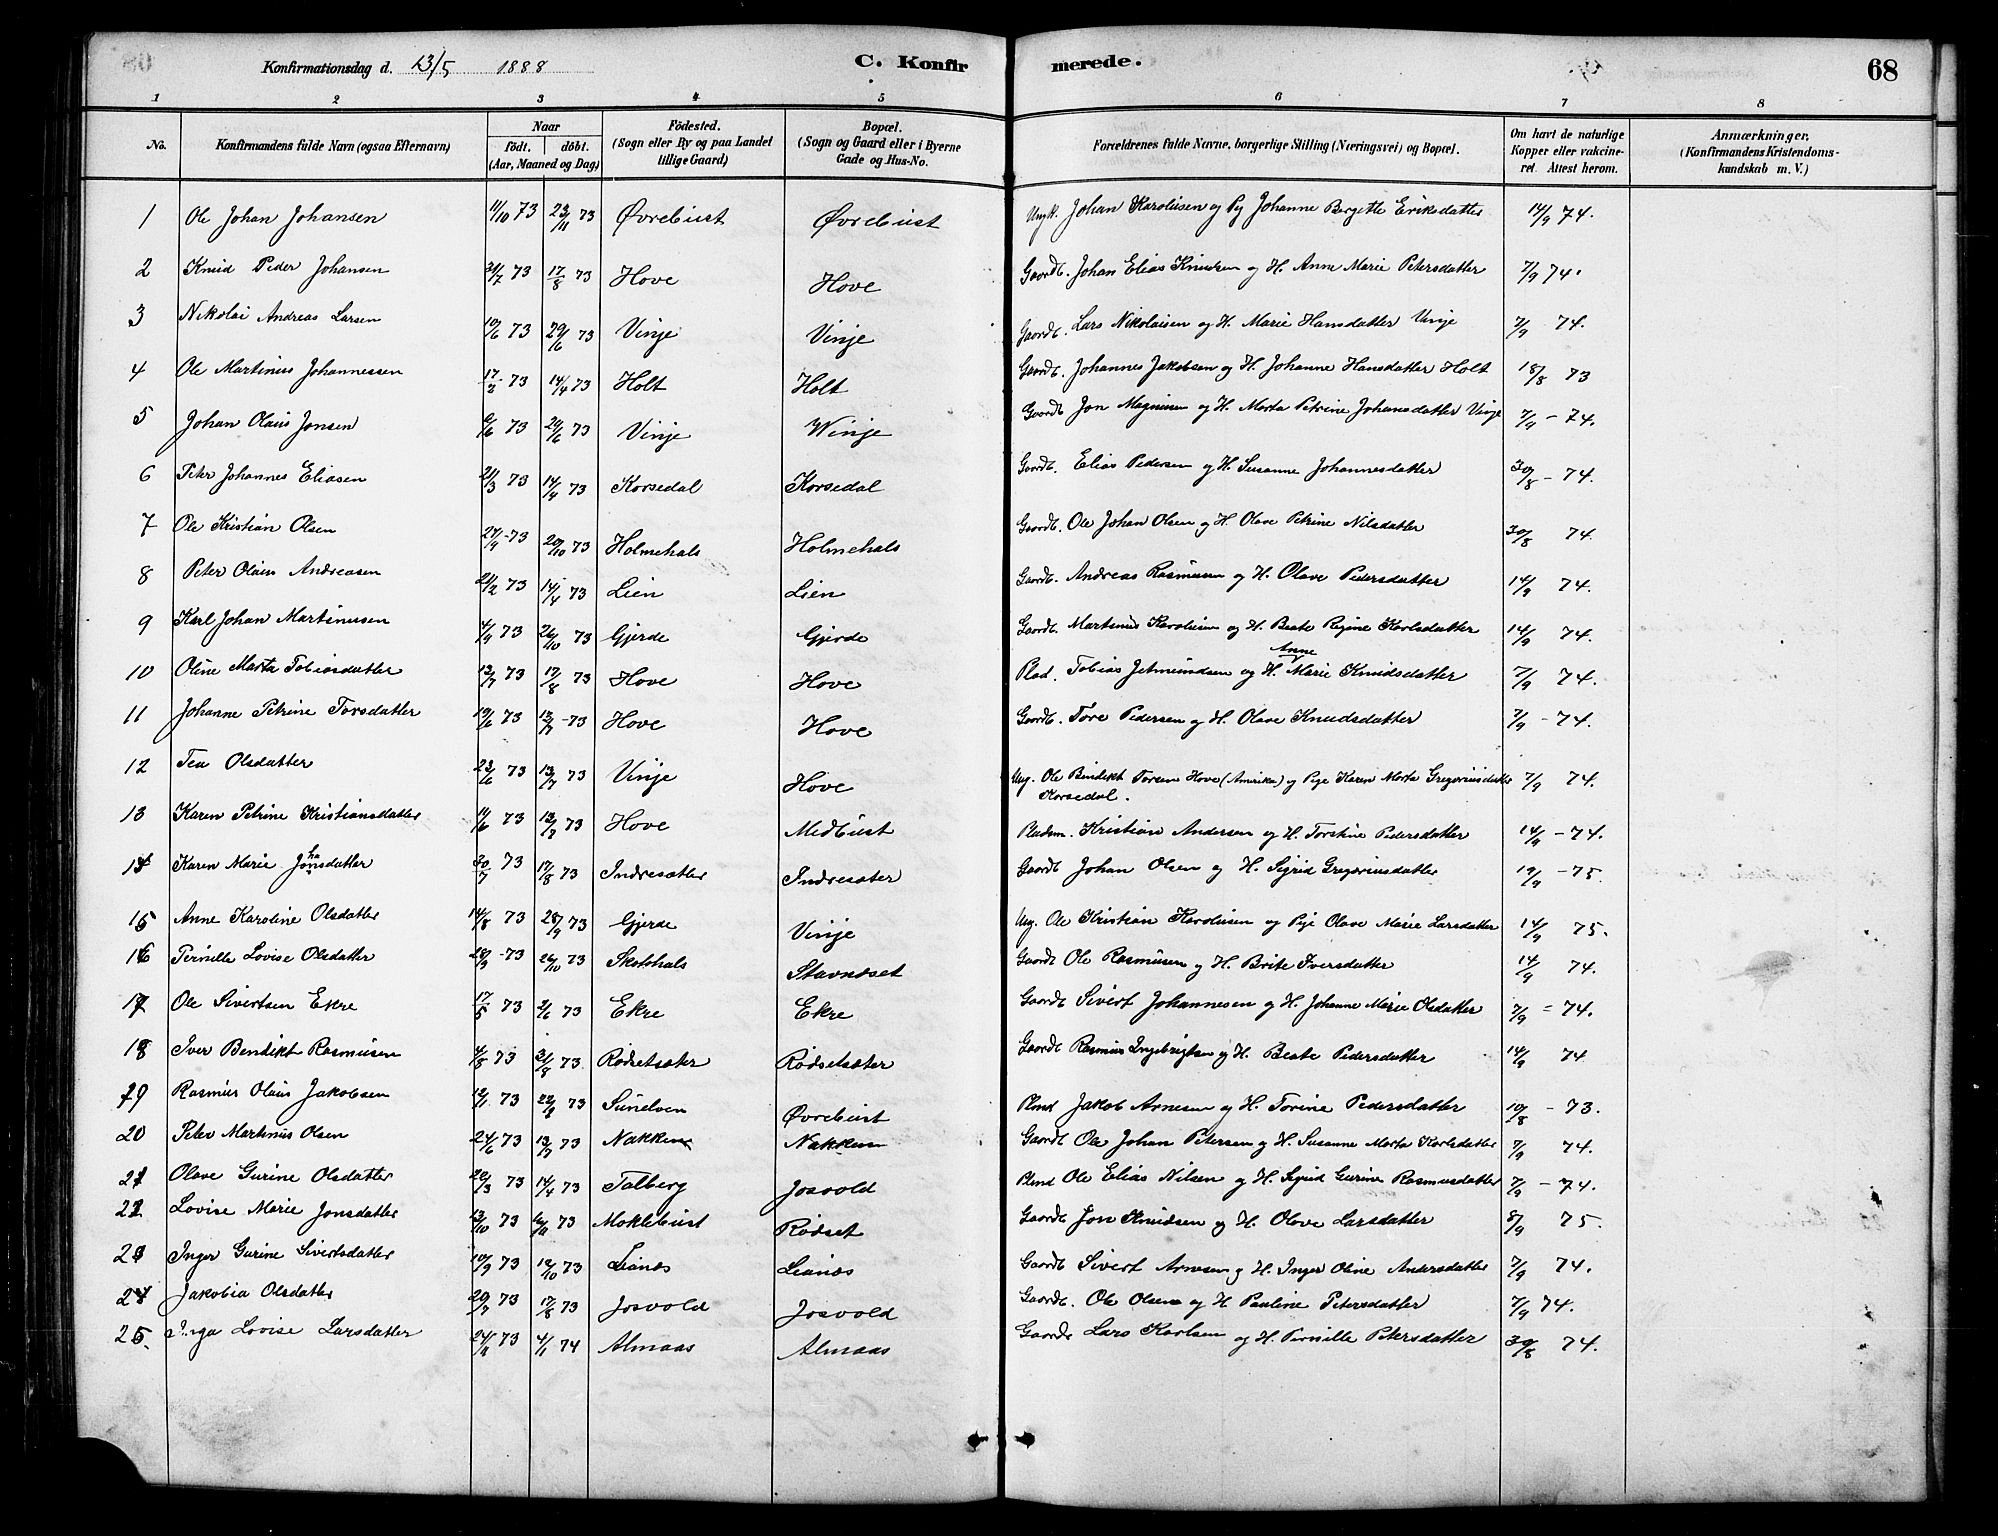 Konfirmationsdag d. 13/5 1888 C. Konfirmerede. 68
1 2 3 4 5 6 7 8
No. Konfirmandens fulde Navn (ogsaa Efternavn) Naar födt. döbt. (Aar, Maaned og Dag) Födested. (Sogn eller By og paa Landet tillige Gaard) Bopæl. (Sogn og Gaard eller i Byerne Gade og Hus-No. Forældrenes fulde Navne, borgerlige Stilling (Næringsvei) og Bopæl. Om havt de naturlige Kopper eller vakcineret. Attest herom. Anmærkninger. (Konfirmandens Kristendomskundskab m. V.)
1 Ole Johan Johansen 11/10 73 23/11 73 Øvrebust Øvrebust Ungk. Johan Karolusen og Pg Johanne Bergette Eriksdatter 14/9 74.
2 Knud Peder Johansen 31/7 73 17/8 73 Hove Hove Gaardb. Johan Elias Knudsen og H. Anne Marie Petersdatter 7/9 74.
3 Nikolai Andreas Larsen 10/6 73 29/6 73 Vinje Vinje Gaardb. Lars Nikolaisen og H. Marie Hansdatter Vinje 7/9 74.
4 Ole Martinus Johannessen 17/3 73 14/4 73 Holt Holt Gaardb. Johannes Jakobsen og H. Johanne Hansdatter Holt 18/8 73
5 Johan Olaus Jonsen 6/6 73 29/6 73 Vinje Winje Gaardb. Jon Magnusen og H. Marta Petrine Johansdatter Vinje 7/9 - 74.
6 Peter Johannes Eliasen 21/3 73 14/4 73 Korsedal Korsedal Gaardb. Elias Pedersen og H. Susanne Johannesdatter 30/8 - 74.
7 Ole Kristian Olsen 27/9 -73 20/10 73 Holmehals Holmehals Gaardb. Ole Johan Olsen og H. Olave Petrine Nilsdatter 30/8 74.
8 Peter Olaus Andreasen 21/2 73 14/4 73 Lien Lien Gaardb. Andreas Rasmusen og H. Olave Pedersdatter 14/9 74.
9 Karl Johan Martinusen 4/9 73 26/10 73 Gjerde Gjerde Gaardb. Martinus Karolusen og H. Beate Regine Karlsdatter 14/9 74.
10 Oline Marta Tobiasdatter 13/7 73 17/8 73 Hove Hove Plad. Tobias Jetmundsen og H. Anne Marie Knudsdatter 7/9 74.
11 Johanne Petrine Torsdatter 19/6 73 13/7 -73 Hove Hove Gaardb. Tore Pedersen og H. Olave Knudsdatter 7/9 - 74.
12 Tea Olsdatter 23/6 73 13/7 73 Vinje Hove Ung. Ole Bindikt Torsen Hove (Amerika) og Pige Karen Marta Gregoriusdatter Korsedal. 7/9 74.
13 Karen Petrine Kristiansdatter 14/6 73 13/7 73 Hove Midbust Pladsm. Kristian Andersen og H. Torstine Pedersdatter 14/9 - 74.
14 Karen Marie Johansdatter 30/7 73 17/8 73 Indresætter Indresæter Gaardb Johan Olsen og H. Sigrid Gregoriusdatter 19/9 - 75.
15 Anne Karoline Olsdatter 14/8 73 28/9 73 Gjerde Vinje Ung. Ole Kristian Karolusen og Pige Olave Marie Larsdatter 14/9 75.
16 Pernille Lovise Olsdatter 28/9 -73 26/10 73 Skothals Stavnæset Gaardb Ole Rasmusen og H. Brite Iversdatter 14/9 74.
17 Ole Sivertsen Ekre 17/5 73 2/6 73 Ekre Ekre Gaardb Sivert Johannesen og H. Johanne Marie Olsdatter 7/9 = 74.
18 Iver Bendikt Rasmusen 4/8 73 31/8 73 Rødsetsæter Rødsetsæter Gaardb Rasmus Ingebrigtsen og H. Beate Pedersdatter 14/9 74
19 Rasmus Olaus Jakobsen 12/1 73 22/6 73 Sunelven Øvrebust Plmd Jakob Arnesen og H. Torine Pedersdatter 10/8 - 73.
20 Peter Martinus Olsen 24/6 73 13/7 73 Nakken Nakken Gaardb Ole Johan Petersen og H. Susanne Marta Karlsdatter 7/9 74.
21 Olave Gurine Olsdatter 20/3 73 14/4 73 Talberg Josvold Plmd Ole Elias Nilsen og H. Sigrid Gurine Rasmusdatter 7/9 - 74.
22 Lovise Marie Jonsdatter 13/10 73 73 Moklebust Rødset Gaardb Jon Knudsen og H. Olave Larsdatter 8/9 75.
23 Inger Gurine Sivertsdatter 10/9 73 12/10 73 Lianes Lianes Gaardb Sivert Arnesen og H. Inger Oline Andersdatter 7/9 74.
24 Jakobia Olsdatter 20/7 73 17/8 73 Josvold Josvold Gaardb. Ole Olsen og H Pauline Petersdatter 7/9 74.
25. Inga Lovise Larsdatter 73 4/1 74 Almaas Almaas Gaardb Lars Karlsen og H. Pernille Petersdatter 30/8 74.